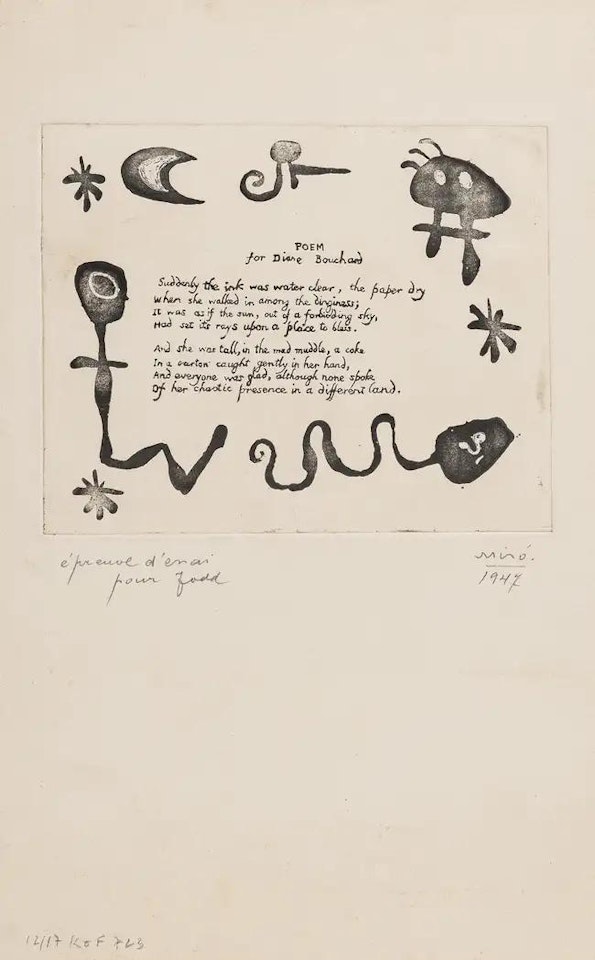 POEM
for Diane Bouchard
Suddenly the ink was water clear, the paper dry
When she walked in among the dinginess;
It was as if the sun, out of a forbidding sky,
Had set its rays upon a place to bless.
And she was tall, in the mad muddle, a coke
In a carton caught gently in her hand,
And everyone was glad, although none spoke
Of her chaotic presence in a different land.
épreuve d'essai
pour Todd
Miró.
1947
12/17 K o F 723